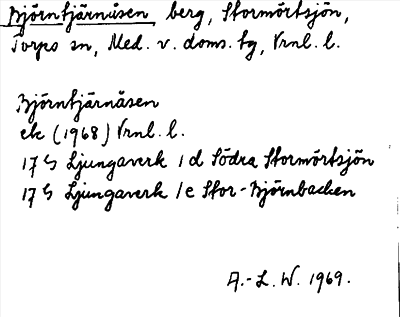 Björntjärnåsen berg, Stormörtsjön,
Torps sn, Med. v. doms. tg, Vrnl. l.
Björntjärnåsen
ek (1968) Vrnl. l.
17 G Ljungaverk 1 d Södra Stormörtsjön
17 G Ljungaverk 1 e Stor-Björnbacken
A.-L. W. 1969.